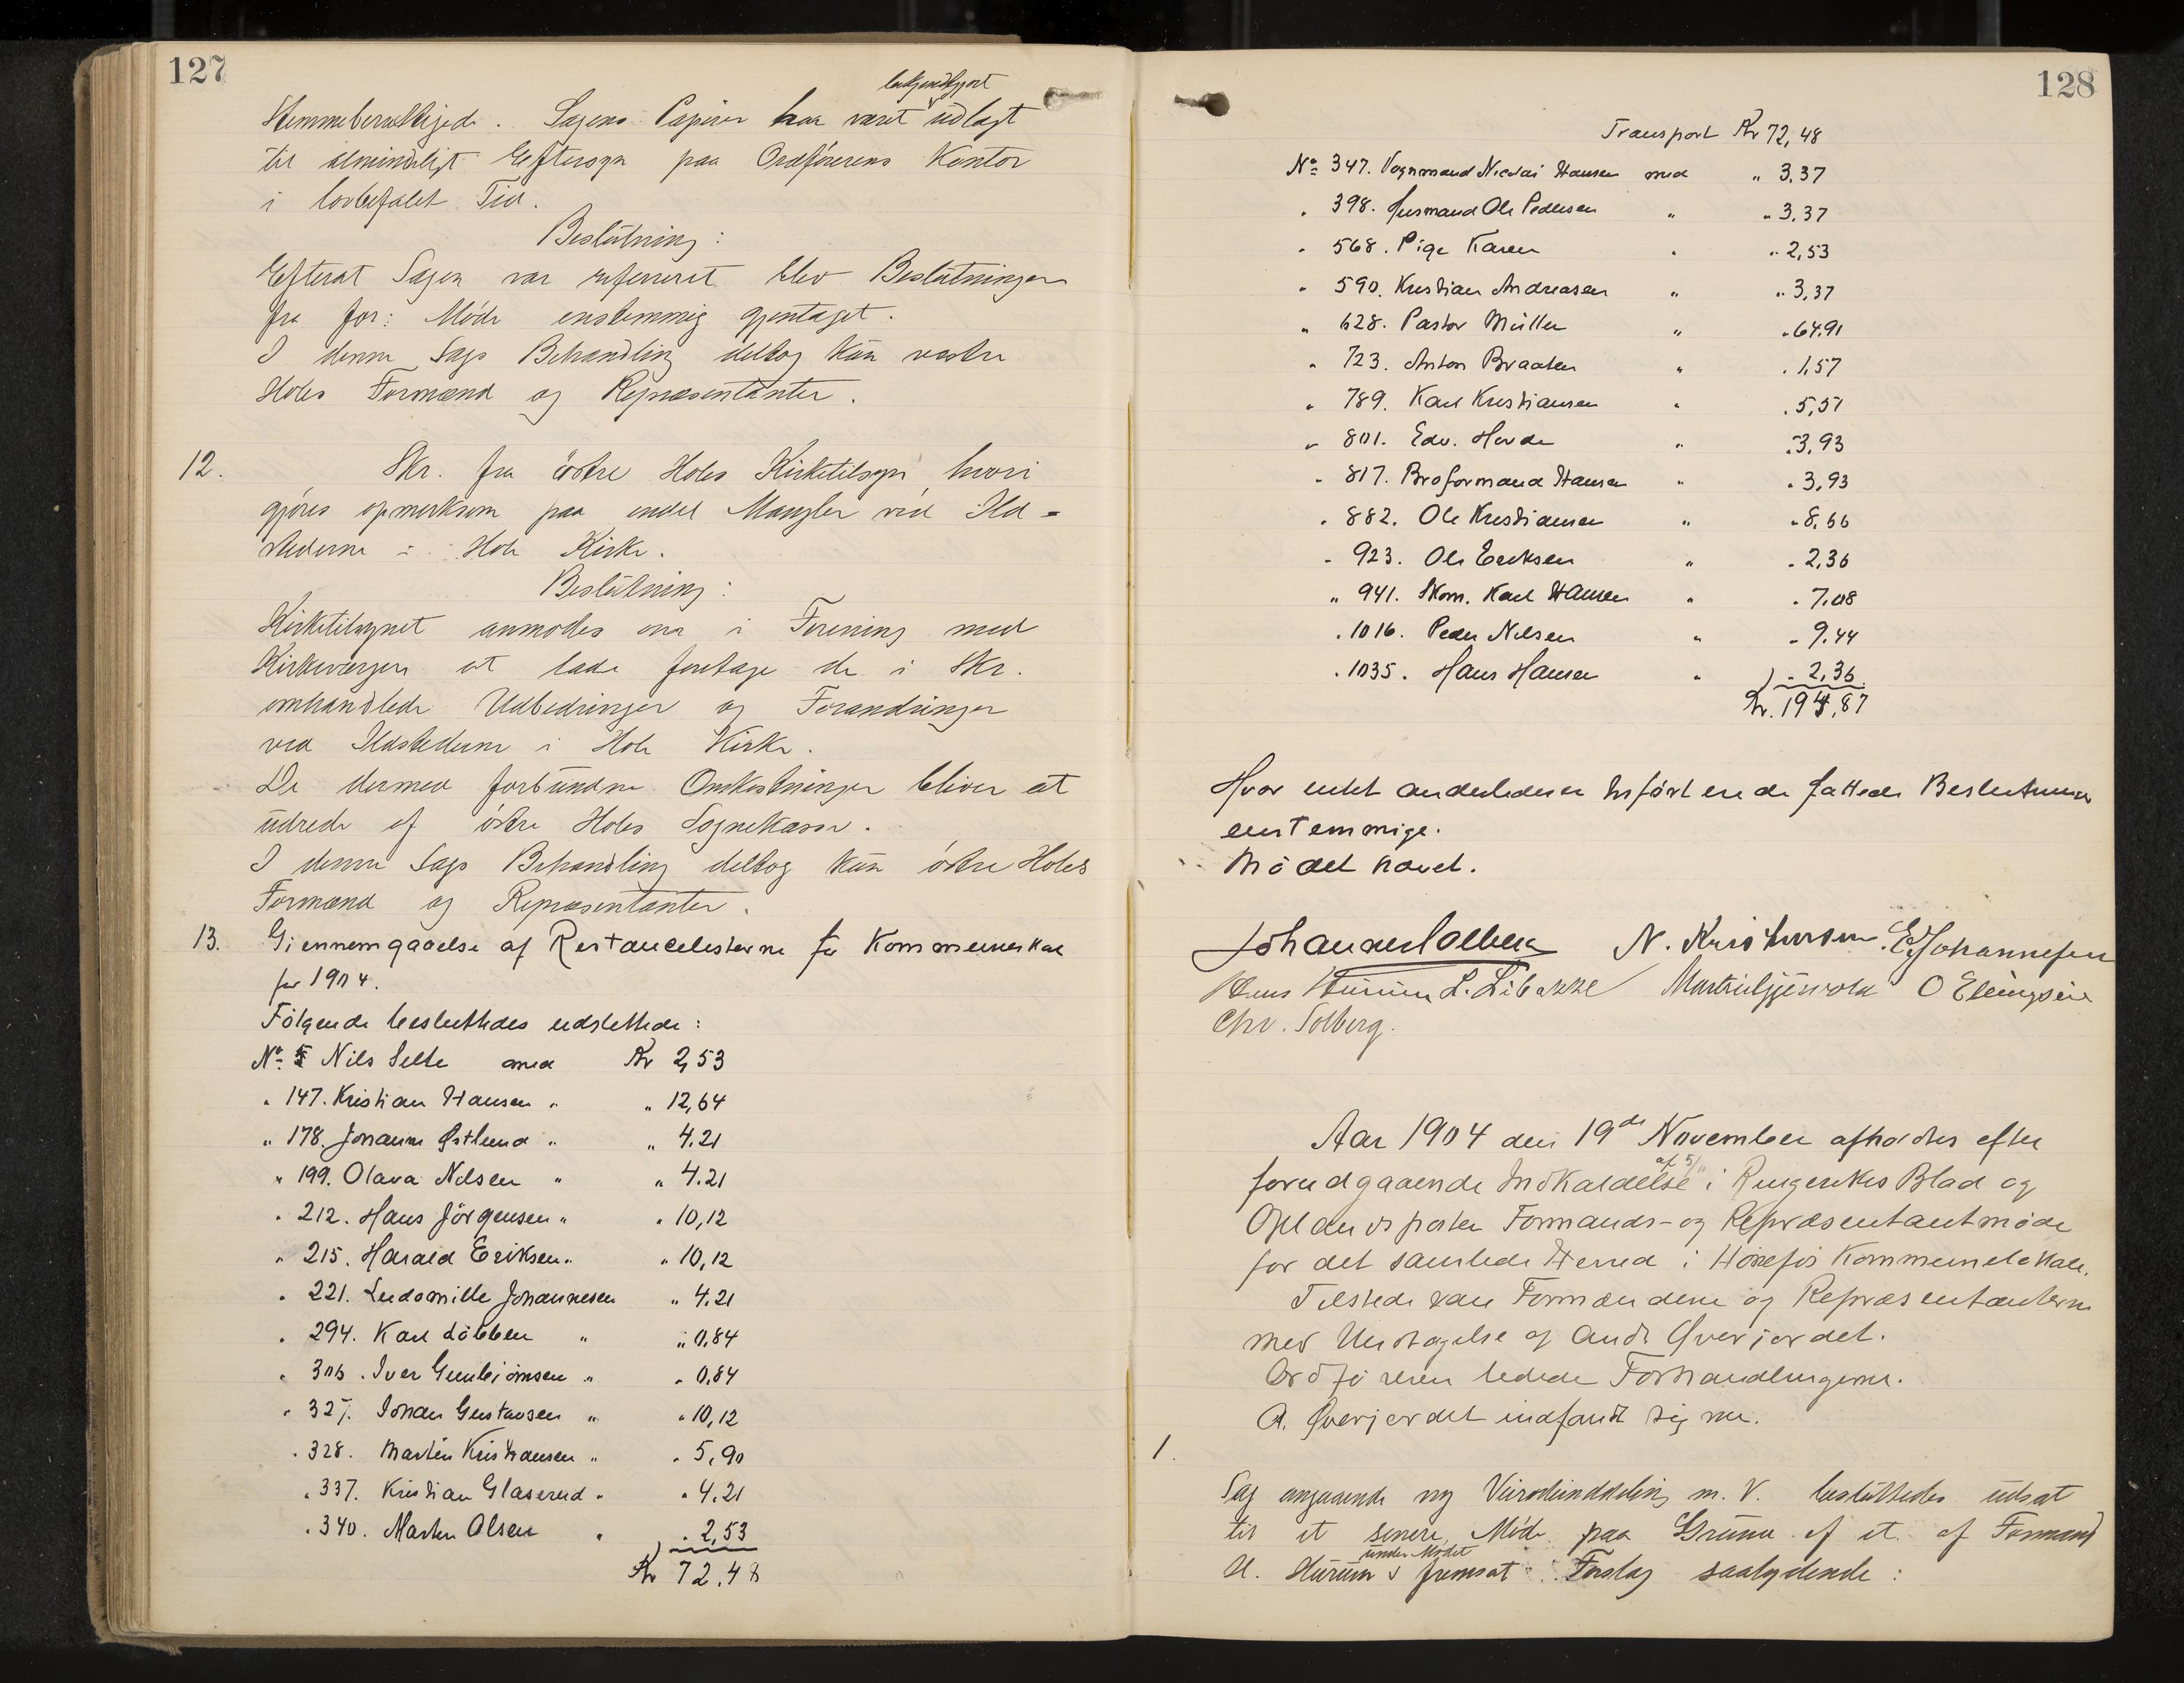 127
bekjendtgjort
Stemmeberettigede. Sagens Papirer har været udlagt
til almindeligt Eftersyn paa Ordførerens Kontor
i lovbefalet Tid.
Beslutning:
Efterat Sagen var refereret blev Beslutningen
fra for: Møde enstemmig gjentaget.
I denne Sags Behandling deltog kun vestre
Holes Formænd og Repræsentanter.
12. Skr. fra østre Holes Kirketilsyn, hvori
gjøres opmerksom paa endel Mangler ved Ild-
stederne i Hole Kirke.
Beslutning:
Kirketilsynet anmodes om i Forening med
Kirkeværgen at lade foretage de i Skr.
omhandlede Udbedringer og Forandringer
ved Ildstederne i Hole Kirke.
De dermed forbundne Omkostninger bliver at
udrede af østre Holes Sognekasse.
I denne Sags Behandling deltog kun østre Holes
Formænd og Repræsentanter.
13. Gjennemgaaelse af Restancelisterne for Kommuneskat
for 1904.
Følgende besluttedes udslettede:
No. 5 Nils Selte med Kr 2,53
" 147. Kristian Hansen " " 12,64
" 178. Johanne Østlund " " 4.21
" 199. Olava Nilsen " " 4.21
" 212. Hans Jörgensen " " 10,12
" 215. Harald Eriksen " " 10,12
" 221. Ludomille Johannesen " 4.21
" 294. Karl Löbben " " 0,84
" 306. Iver Gunbjörnsen " " 0,84
" 327. Johan Gustavsen " " 10,12
" 328. Martin Kristiansen " " 5,90
" 337. Kristian Glaserud " " 4.21
" 340. Martin Olsen " " 2,53
Kr 72.48
128
Transport Kr 72,48
No. 347. Vognmand Nicolai Hansen med " 3.37
" 398. Husmand Ole Pedersen " " 3,37
" 568. Pige Karen " " 2,53
" 590. Kristian Andreasen " " 3,37
" 628. Pastor Müller " " 64.91
" 723. Anton Braaten " " 1,57
" 789. Karl Kristiansen " " 5,51
" 801. Edv. Hovde " " 3,93
" 817. Broformand Hansen " " 3,93
" 882. Ole Kristiansen " " 8,66
" 923. Ole Eriksen " " 2,36
" 941. Skom. Karl Hansen " " 7.08
" 1016. Peder Nilsen " " 9.44
" 1035. Hans Hansen " " 2,36
Kr. 194,87
Hvor intet anderledes er tilført er de fattede Beslutninger
enstemmige.
Mödet hævet.
Johannes Solberg N. Kristiansen. E. Johannesen
Hans Hurum L. Libakke Martin Gjesvold O Ellingsen
Chr. Solberg.
Aar 1904 den 19de November afholdtes efter
forudgaaende Indkaldelse af 5/11 i Ringerikes Blad og
Oplandsposten Formands- og Repræsentantmøde
for det samlede Herred i Hönefos Kommunelokale.
Tilstede var Formændene og Repræsentanterne
med Undtagelse af Andr. Øverjordet.
Ordföreren ledede Forhandlingerne.
A. Øverjordet indfandt sig nu.
1.
Sag angaaende ny Veirodeinddeling m. V. besluttedes udsat
til et senere Møde paa Grund af et af Formand
under Mødet
H. Hurum fremsat Forslag saalydende: